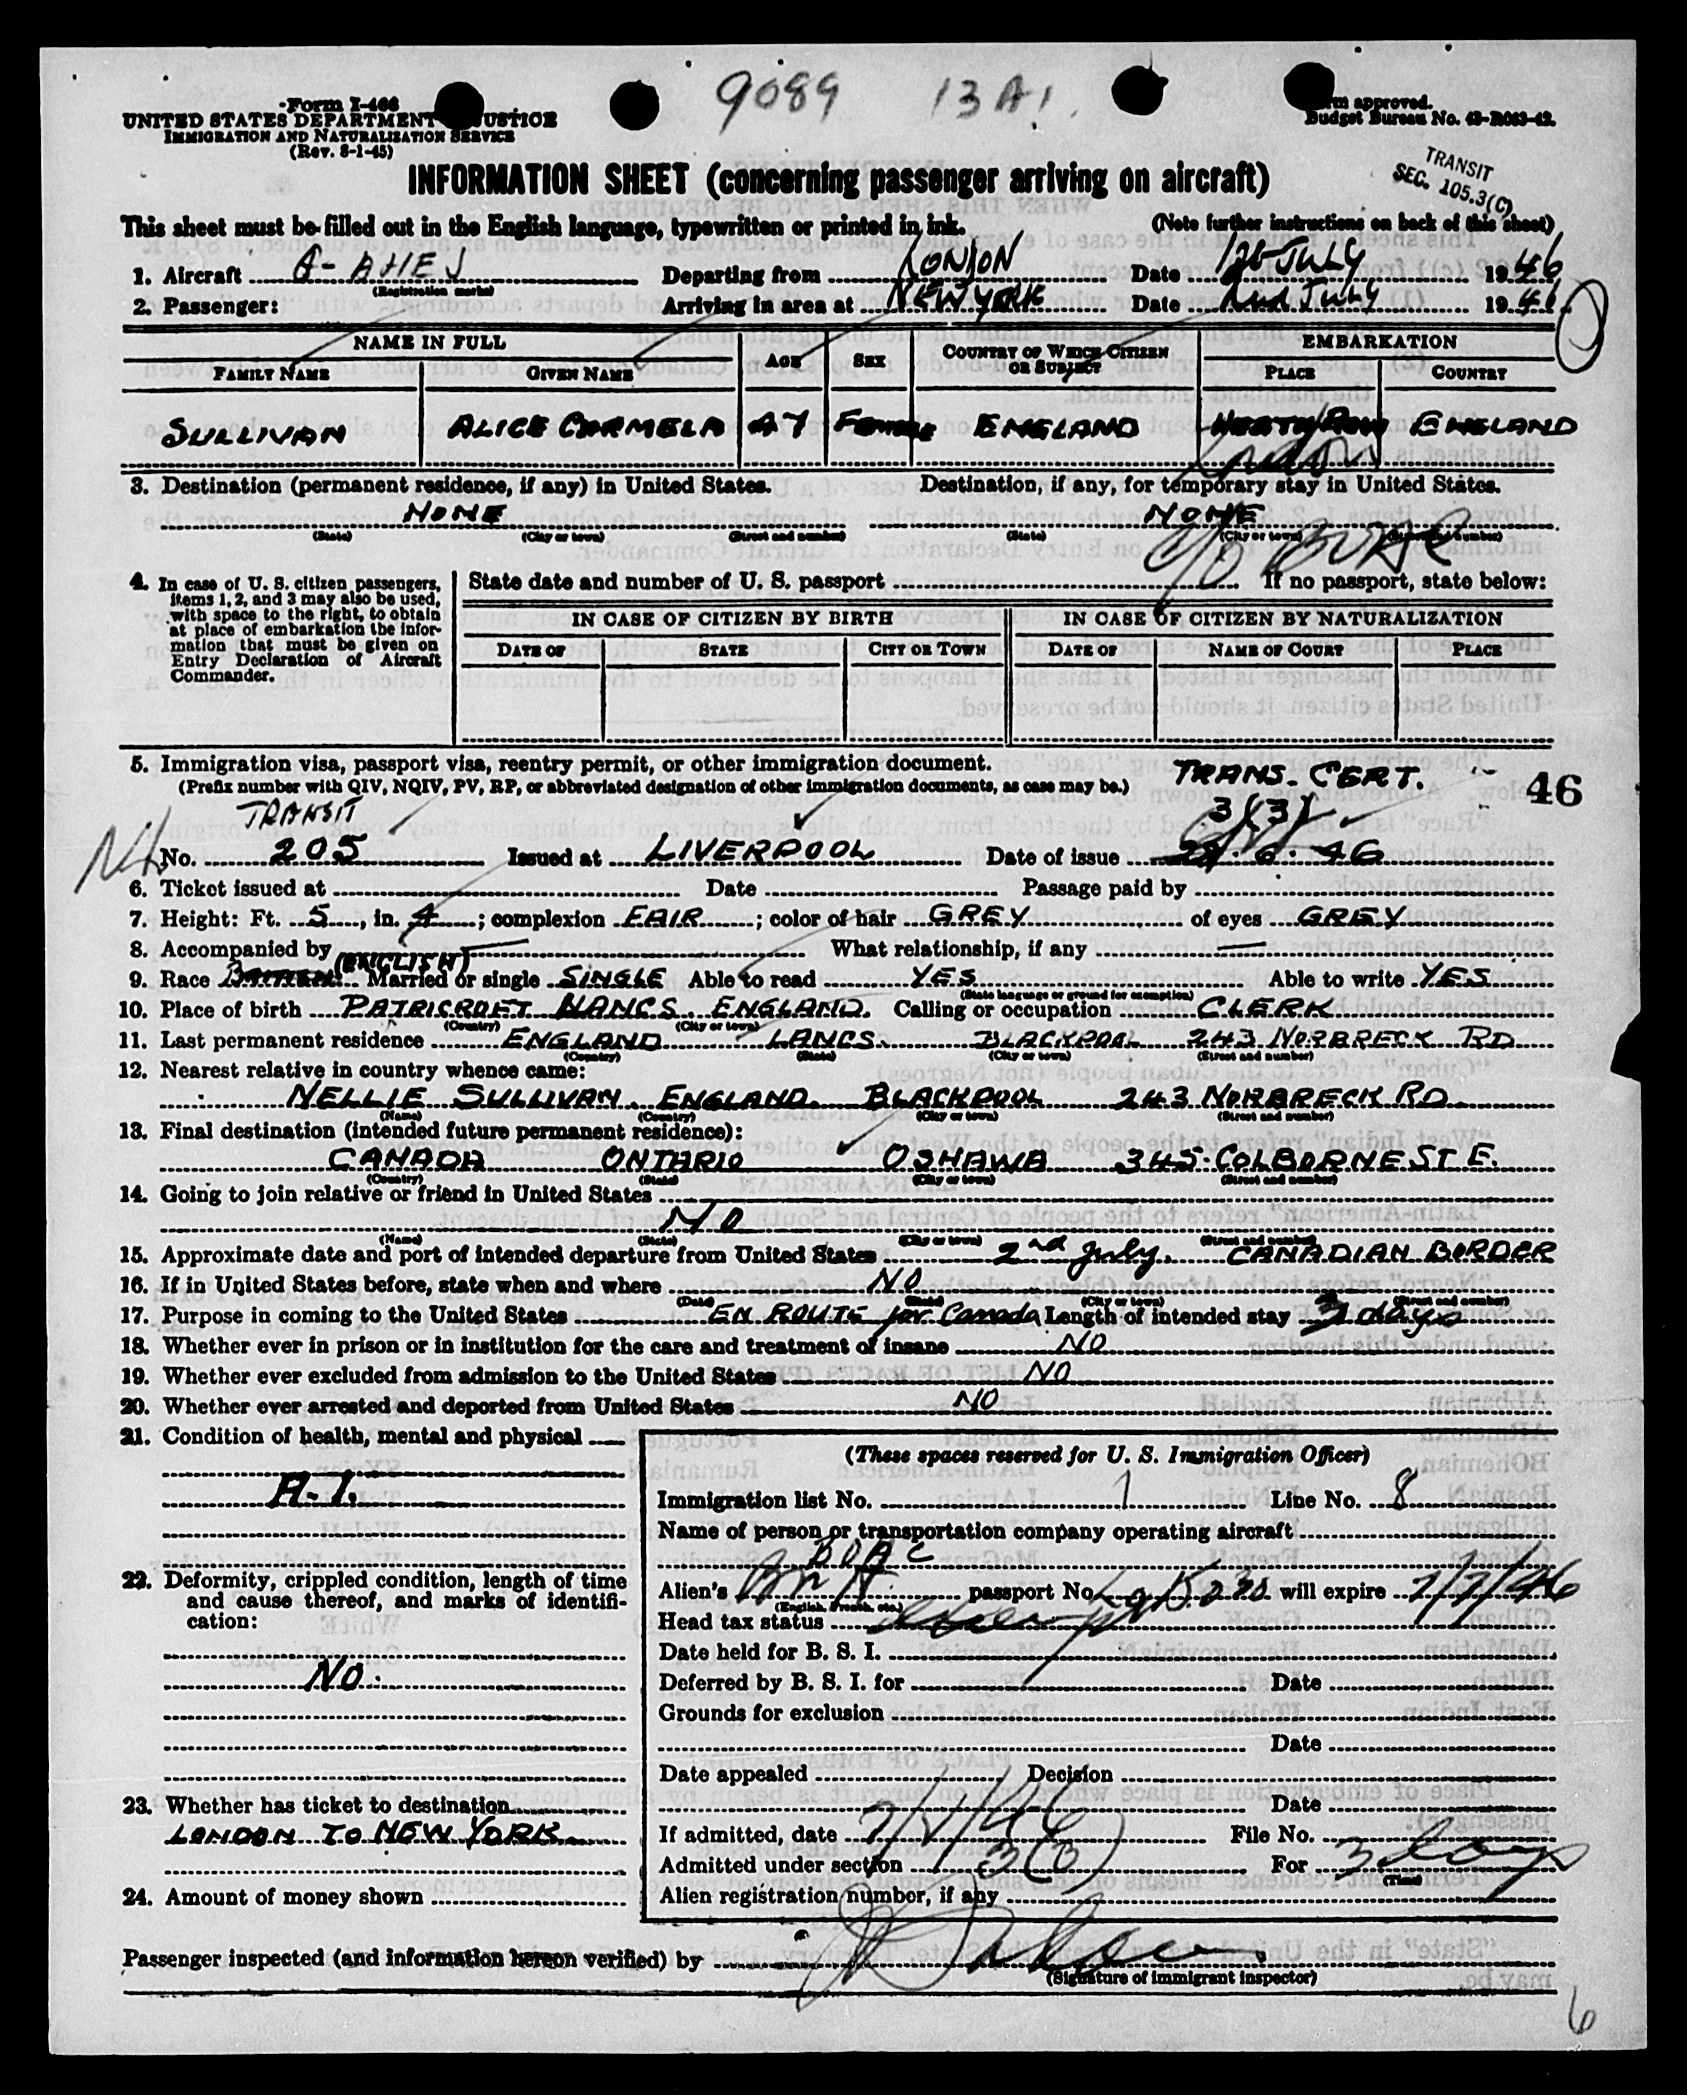 9089 13 A1.
Form I-466
UNITED STATES DEPARTMENT JUSTICE
IMMIGRATION AND NATURALIZATION SERVICE
(Rev. 8-1-45)
approved.
Budget Bureau No. 43-R063-42.
INFORMATION SHEET (concerning passenger arriving on aircraft)
TRANSIT
SEC. 105.3(C)
This sheet must be filled out in the English language, typewritten or printed in ink. (Note further instructions on back of this sheet)
1. Aircraft G- AHEJ Departing from LONDON Date 1st JULY 1946
(Registration marks)
2. Passenger: Arriving in area at NEW YORK Date 2nd JULY 1946
NAME IN FULL AGE SEX COUNTRY OF WHICH CITIZEN OR SUBJECT EMBARKATION
FAMILY NAME GIVEN NAME PLACE COUNTRY
SULLIVAN ALICE CARMELA 47 Female ENGLAND ENGLAND
London
3. Destination (permanent residence, if any) in United States. Destination, if any, for temporary stay in United States.
NONE NONE
(State) (City or town) (Street and number) (State) (City or town) (Street and number)
c/o BOAC
4. In case of U. S. citizen passengers, items 1, 2, and 3 may also be used, with space to the right, to obtain at place of embarkation the information that must be given on Entry Declaration of Aircraft Commander.
State date and number of U. S. passport If no passport, state below:
IN CASE OF CITIZEN BY BIRTH IN CASE OF CITIZEN BY NATURALIZATION
DATE OF STATE CITY OR TOWN DATE OF NAME OF COURT PLACE
5. Immigration visa, passport visa, reentry permit, or other immigration document.
(Prefix number with QIV, NQIV, PV, RP, or abbreviated designation of other immigration documents, as case may be.)
TRANS. CERT. 46
TRANSIT 3(3)
No. 205 Issued at LIVERPOOL Date of issue 28. 6. 46
6. Ticket issued at Date Passage paid by
7. Height: Ft. 5, in. 4; complexion FAIR; color of hair GREY of eyes GREY
8. Accompanied by — What relationship, if any —
(ENGLISH)
9. Race Married or single SINGLE Able to read YES Able to write YES
(State language or ground for exemption)
10. Place of birth PATRICROFT LANCS. ENGLAND. Calling or occupation CLERK
(Country) (City or town)
11. Last permanent residence ENGLAND LANCS. BLACKPOOL 243 NORBRECK RD
(Country) (State) (City or town) (Street and number)
12. Nearest relative in country whence came:
NELLIE SULLIVAN. ENGLAND. BLACKPOOL 243 NORBRECK RD.
(Name) (Country) (City or town) (Street and number)
13. Final destination (intended future permanent residence):
CANADA ONTARIO OSHAWA 345 COLBORNE ST E.
(Country) (State) (City or town) (Street and number)
14. Going to join relative or friend in United States
NO
(Name) (State) (City or town) (Street and number)
15. Approximate date and port of intended departure from United States 2nd July. CANADIAN BORDER
16. If in United States before, state when and where NO
(Date) (State) (City or town) (Street and number)
17. Purpose in coming to the United States EN ROUTE for Canada Length of intended stay 3 days
18. Whether ever in prison or in institution for the care and treatment of insane NO
19. Whether ever excluded from admission to the United States NO
20. Whether ever arrested and deported from United States NO
21. Condition of health, mental and physical
A. 1.
22. Deformity, crippled condition, length of time and cause thereof, and marks of identification:
NO.
23. Whether has ticket to destination
LONDON TO NEW YORK
24. Amount of money shown
(These spaces reserved for U. S. Immigration Officer)
Immigration list No. 1 Line No. 8
Name of person or transportation company operating aircraft
BOAC
Alien's passport No. will expire
(English, French, etc.)
Head tax status
Date held for B. S. I.
Deferred by B. S. I. for Date
Grounds for exclusion
Date
Date appealed Decision
Date
If admitted, date File No.
Admitted under section 3(3) For 3 days
(Time)
Alien registration number, if any
Passenger inspected (and information hereon verified) by
(Signature of immigrant inspector)
6